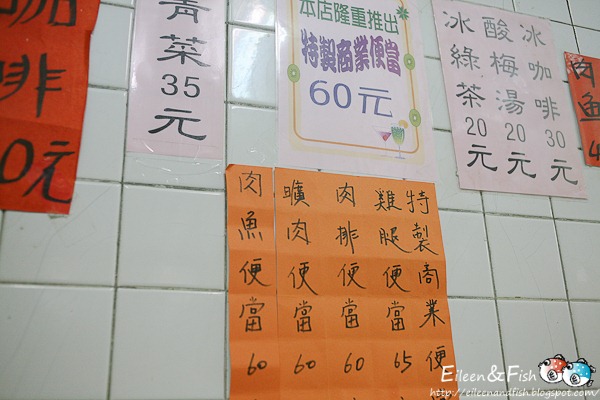 咖啡
0元
青菜35元
本店隆重推出
特製商業便當
60元
冰咖啡30元
酸梅湯20元
冰綠茶20元
肉魚
4
特製商業便
雞腿便當65
肉排便當60
爌肉便當60
肉魚便當60
Eileen&Fish
http://eileenandfish.blogspot.com/